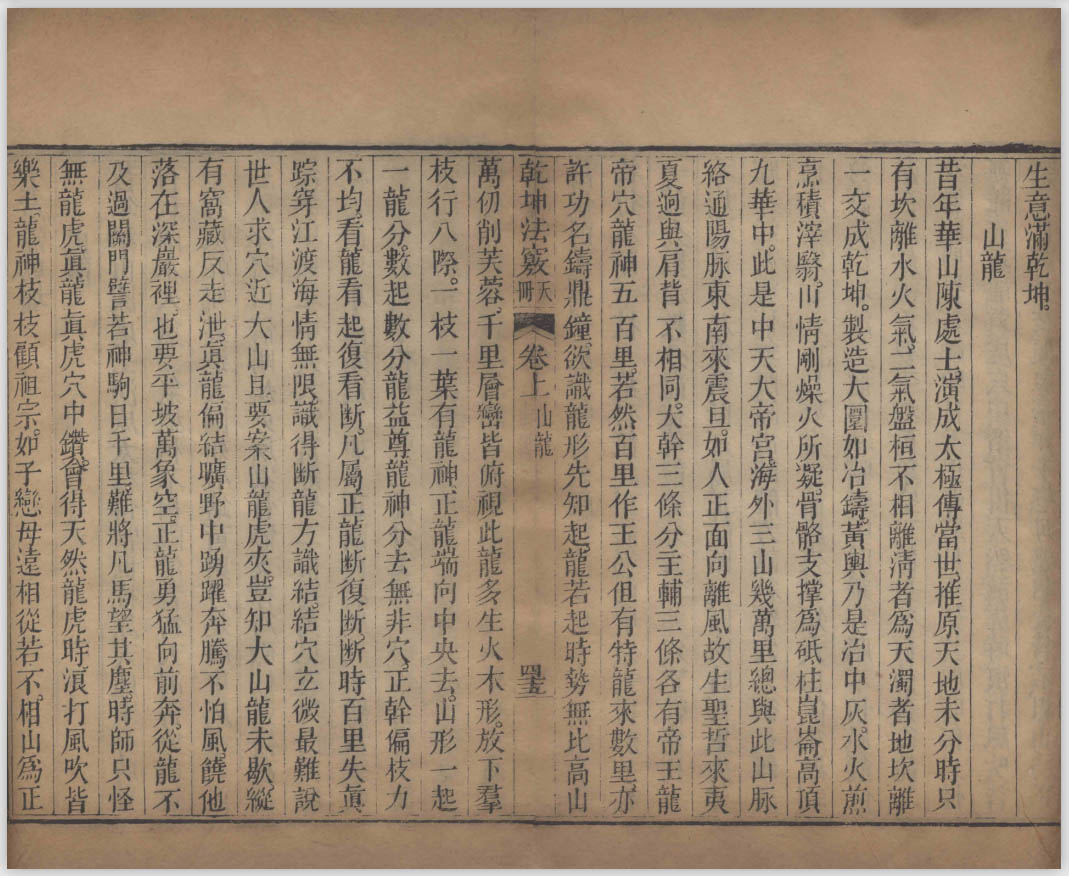 生意滿乾坤。
山龍
昔年華山陳處士。演成太極傳當世。推原天地未分時。只
有坎離水火氣。二氣盤桓不相離。淸者爲天濁者地。坎離
一交成乾坤。製造大圜如冶鑄。黃輿乃是冶中灰。水火煎
烹積滓翳。山情剛燥火所凝。骨骼支撐爲砥柱。崑崙高頂
九華中。此是中天大帝宮。海外三山幾萬里。總與此山脉
絡通。陽脉東南來震旦。如人正面向離風。故生聖哲來夷
夏。迥與肩背不相同。大幹三條分主輔。三條各有帝王龍
帝穴龍神五百里。若然百里作王公。伹有特龍來數里。亦
許功名鑄鼎鐘。欲識龍形先知起。龍若起時勢無比。高山
乾坤法竅 天冊 卷上 山龍 罜
萬仞削芙蓉。千里層巒皆俯視。此龍多生火木形。放下羣
枝行八際。一枝一葉有龍神。正龍端向中央去。山形一起
一龍分。數起數分龍益尊。龍神分去無非穴。正幹偏枝力
不均。看龍看起復看断。凡屬正龍断復断。断時百里失眞
踪。穿江渡海情無限。識得断龍方識結。結穴立微最難說
世人求穴近大山。且要案山龍虎夾。豈知大山龍未歇。縱
有窩藏反走泄。眞龍偏結曠野中。踴躍奔騰不怕風。饒他
落在深巖裡。也要平坡萬象空。正龍勇猛向前奔。從龍不
及過關門。譬若神駒日千里。難將凡馬望其塵。時師只怪
無龍虎。眞龍眞虎穴中鑽。會得天然龍虎時。浪打風吹皆
樂土。龍神枝枝顧祖宗。如子戀母遠相從。若不相山爲正